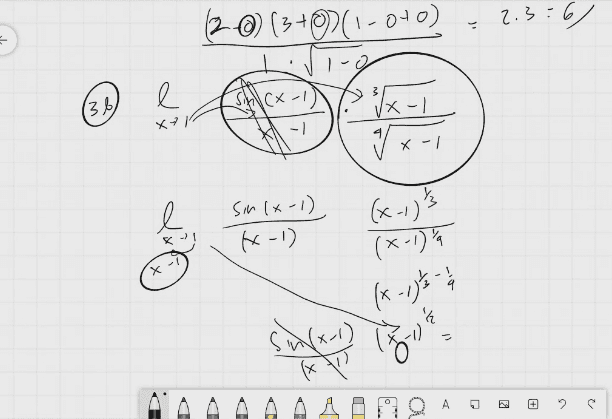 (2-0)(3+0)(1-0+0) / 1 · √(1-0) = 2.3 = 6
36) l x→1 sin(x-1) / x-1 · ∛(x-1) / ∜(x-1)
l x→1 sin(x-1) / (x-1) (x-1)^1/3 / (x-1)^1/4
x-1
(x-1)^1/3-1/4
sin(x-1) / (x-1) (x-1)^1/2 =
0
A